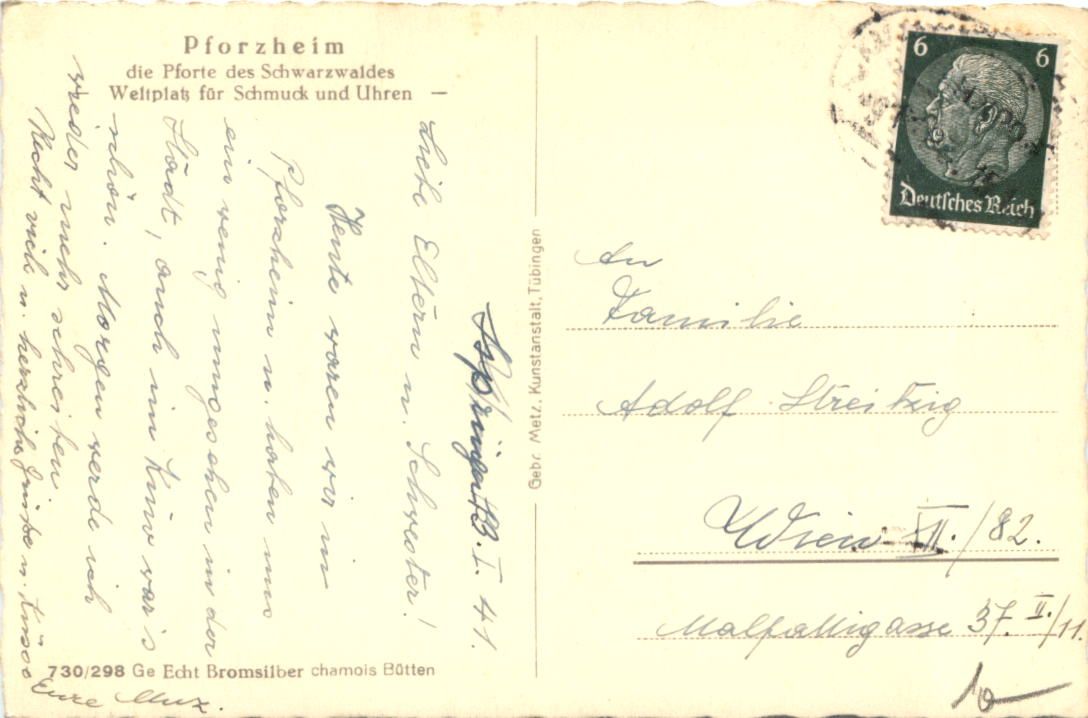 Pforzheim
die Pforte des Schwarzwaldes
Weltplatz für Schmuck und Uhren —
13. I. 41.
Liebe Eltern u. Schwester!
Heute waren wir in
Pforzheim u. haben uns
ein wenig umgesehen in der
Stadt, auch im Kino war's
schön. Morgen werde ich
wieder mehr schreiben
Recht viele u. herzliche Grüße u. Küsse
Eure
730/298 Ge Echt Bromsilber chamois Bütten
Gebr. Metz, Kunstanstalt, Tübingen
6 6
Deutsches Reich
An
Familie
Adolf Streitzig
Wien VII./82.
37. II./11.